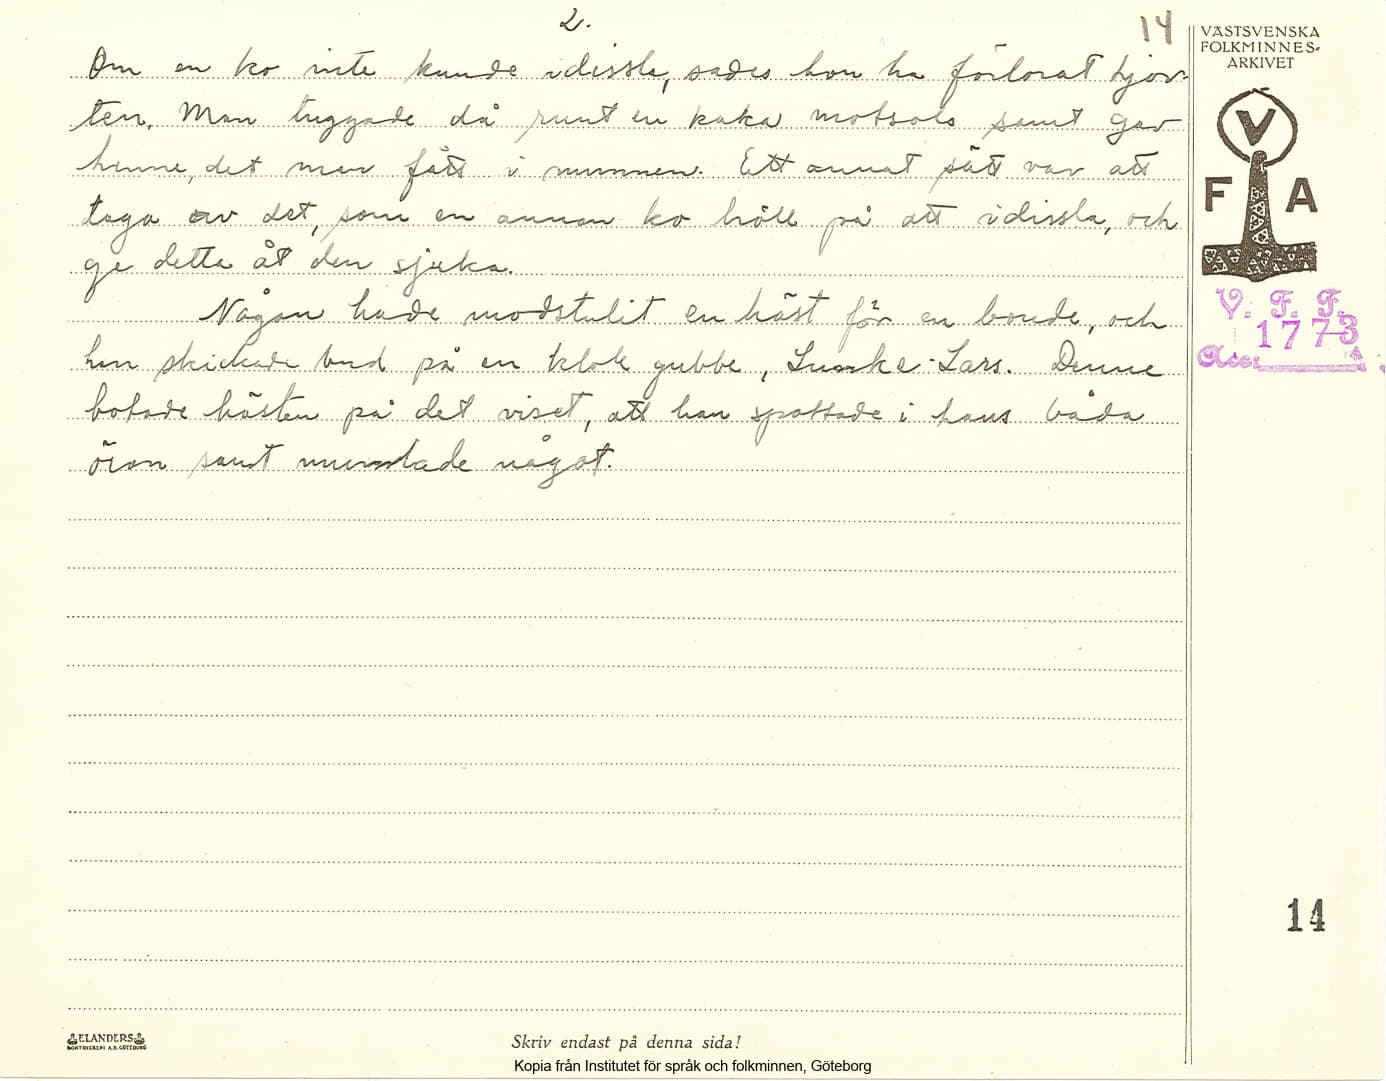 2.
14
VÄSTSVENSKA
FOLKMINNES-
ARKIVET
Om en ko inte kunde idissla, sades hon ha förlorat hjor-
ten. Man tuggade då runt en kaka motsols samt gav
henne, det man fått i munnen. Ett annat sätt var att
taga av det, som en annan ko höll på att idissla, och
ge detta åt den sjuka.
Någon hade modstulit en häst för en bonde, och
han skickade bud på en klok gubbe, Lunke-Lars. Denne
botade hästen på det viset, att han spottade i hans båda
öron samt mumlade något.
V
F A
V. F. F.
1773
Acc.
14
ELANDERS
BOKTRYCKERI A.B. GÖTEBORG
Skriv endast på denna sida!
Kopia från Institutet för språk och folkminnen, Göteborg